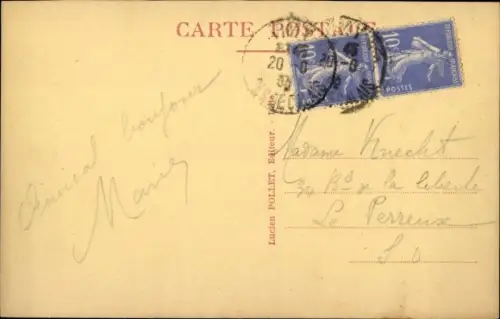 CARTE POSTALE
10
POSTES
10
Amical bonjour
Marie
Lucien POLLET, Editeur.
Madame Knecht
34 Bd de la liberté
Le Perreux
S O